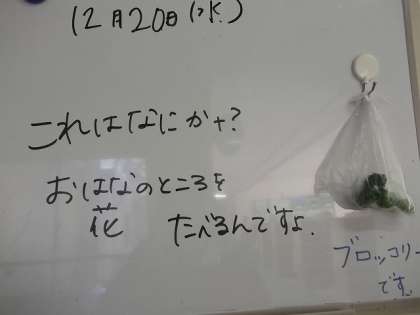 12月20日(水)
これはなにかナ?
おはなのところを
花
たべるんですよ.
ブロッコリー
です